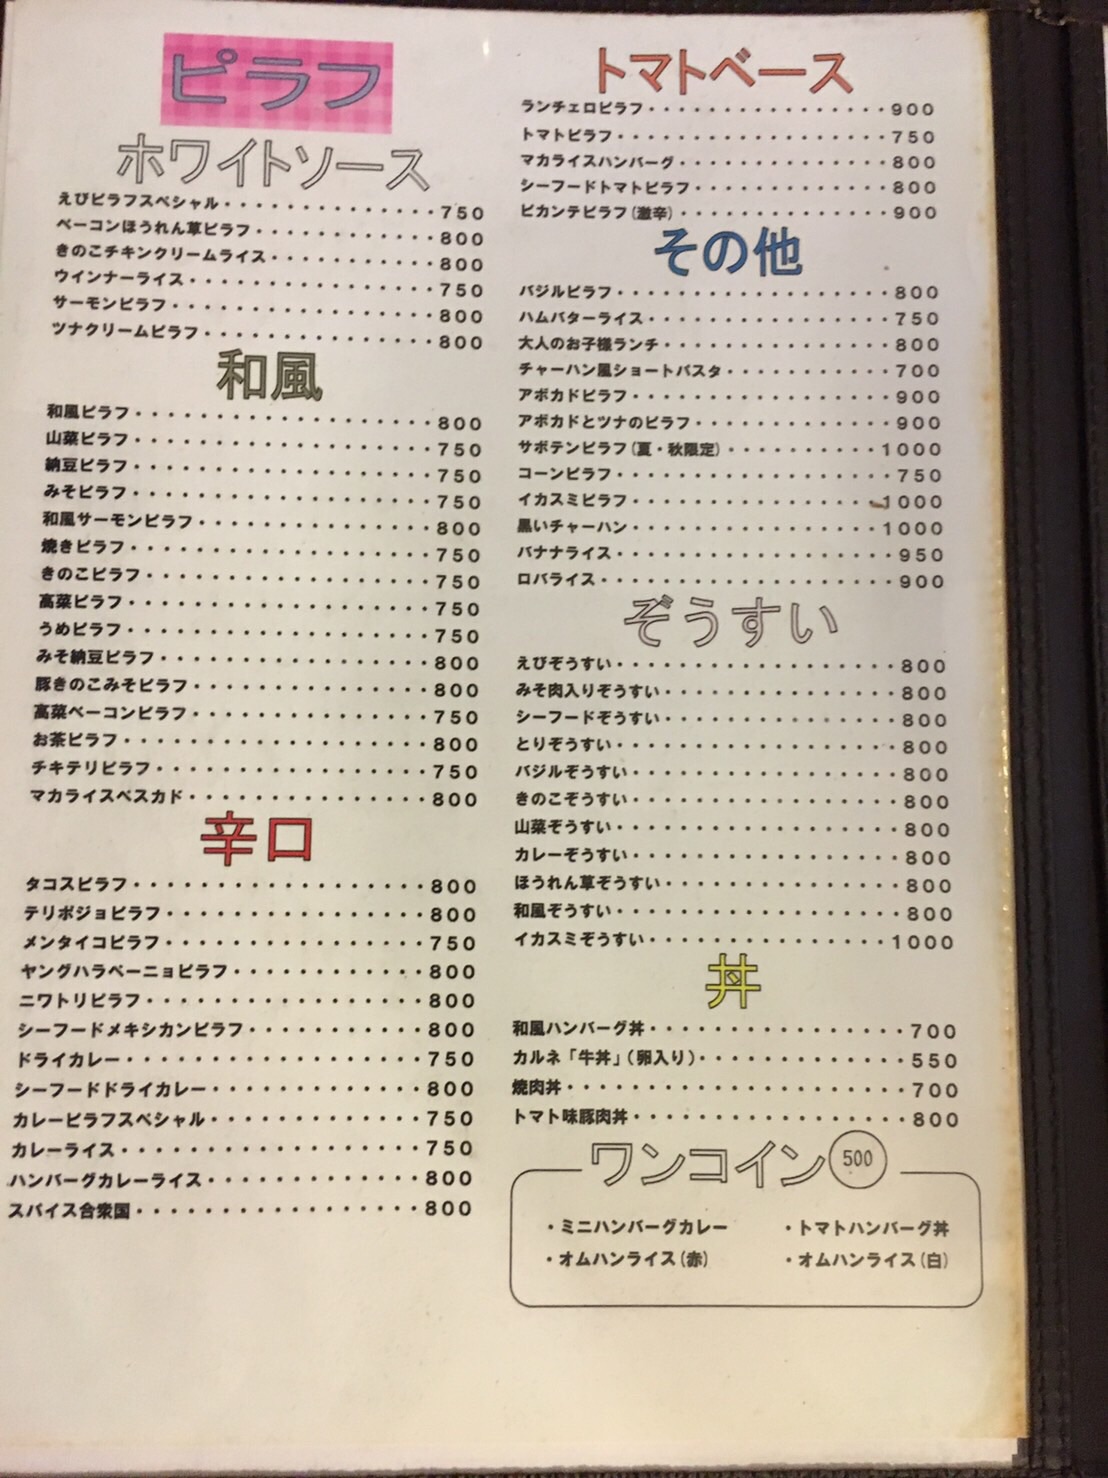 ピラフ
ホワイトソース
えびピラフスペシャル・・・・・・・・・・・・・750
ベーコンほうれん草ピラフ・・・・・・・・・・・800
きのこチキンクリームライス・・・・・・・・・・800
ウインナーライス・・・・・・・・・・・・・・・750
サーモンピラフ・・・・・・・・・・・・・・・・800
ツナクリームピラフ・・・・・・・・・・・・・・800
和風
和風ピラフ・・・・・・・・・・・・・・・・・・800
山菜ピラフ・・・・・・・・・・・・・・・・・・750
納豆ピラフ・・・・・・・・・・・・・・・・・・750
みそピラフ・・・・・・・・・・・・・・・・・・750
和風サーモンピラフ・・・・・・・・・・・・・・800
焼きピラフ・・・・・・・・・・・・・・・・・・750
きのこピラフ・・・・・・・・・・・・・・・・・750
高菜ピラフ・・・・・・・・・・・・・・・・・・750
うめピラフ・・・・・・・・・・・・・・・・・・750
みそ納豆ピラフ・・・・・・・・・・・・・・・・800
豚きのこみそピラフ・・・・・・・・・・・・・・800
高菜ベーコンピラフ・・・・・・・・・・・・・・750
お茶ピラフ・・・・・・・・・・・・・・・・・・800
チキテリピラフ・・・・・・・・・・・・・・・・750
マカライスペスカド・・・・・・・・・・・・・・800
辛口
タコスピラフ・・・・・・・・・・・・・・・・・800
テリポジョピラフ・・・・・・・・・・・・・・・800
メンタイコピラフ・・・・・・・・・・・・・・・750
ヤングハラペーニョピラフ・・・・・・・・・・・800
ニワトリピラフ・・・・・・・・・・・・・・・・800
シーフードメキシカンピラフ・・・・・・・・・・800
ドライカレー・・・・・・・・・・・・・・・・・750
シーフードドライカレー・・・・・・・・・・・・800
カレーピラフスペシャル・・・・・・・・・・・・750
カレーライス・・・・・・・・・・・・・・・・・750
ハンバーグカレーライス・・・・・・・・・・・・800
スパイス合衆国・・・・・・・・・・・・・・・・800
トマトベース
ランチェロピラフ・・・・・・・・・・・・・・・900
トマトピラフ・・・・・・・・・・・・・・・・・750
マカライスハンバーグ・・・・・・・・・・・・・800
シーフードトマトピラフ・・・・・・・・・・・・800
ピカンテピラフ(激辛)・・・・・・・・・・・・・900
その他
バジルピラフ・・・・・・・・・・・・・・・・・800
ハムバターライス・・・・・・・・・・・・・・・750
大人のお子様ランチ・・・・・・・・・・・・・・800
チャーハン風ショートパスタ・・・・・・・・・・700
アボカドピラフ・・・・・・・・・・・・・・・・900
アボカドとツナのピラフ・・・・・・・・・・・・900
サボテンピラフ(夏・秋限定)・・・・・・・・・1000
コーンピラフ・・・・・・・・・・・・・・・・・750
イカスミピラフ・・・・・・・・・・・・・・・1000
黒いチャーハン・・・・・・・・・・・・・・・1000
バナナライス・・・・・・・・・・・・・・・・・950
ロバライス・・・・・・・・・・・・・・・・・・900
ぞうすい
えびぞうすい・・・・・・・・・・・・・・・・・800
みそ肉入りぞうすい・・・・・・・・・・・・・・800
シーフードぞうすい・・・・・・・・・・・・・・800
とりぞうすい・・・・・・・・・・・・・・・・・800
バジルぞうすい・・・・・・・・・・・・・・・・800
きのこぞうすい・・・・・・・・・・・・・・・・800
山菜ぞうすい・・・・・・・・・・・・・・・・・800
カレーぞうすい・・・・・・・・・・・・・・・・800
ほうれん草ぞうすい・・・・・・・・・・・・・・800
和風ぞうすい・・・・・・・・・・・・・・・・・800
イカスミぞうすい・・・・・・・・・・・・・・1000
丼
和風ハンバーグ丼・・・・・・・・・・・・・・・700
カルネ「牛丼」(卵入り)・・・・・・・・・・・・550
焼肉丼・・・・・・・・・・・・・・・・・・・・700
トマト味豚肉丼・・・・・・・・・・・・・・・・800
ワンコイン 500
・ミニハンバーグカレー ・トマトハンバーグ丼
・オムハンライス(赤) ・オムハンライス(白)